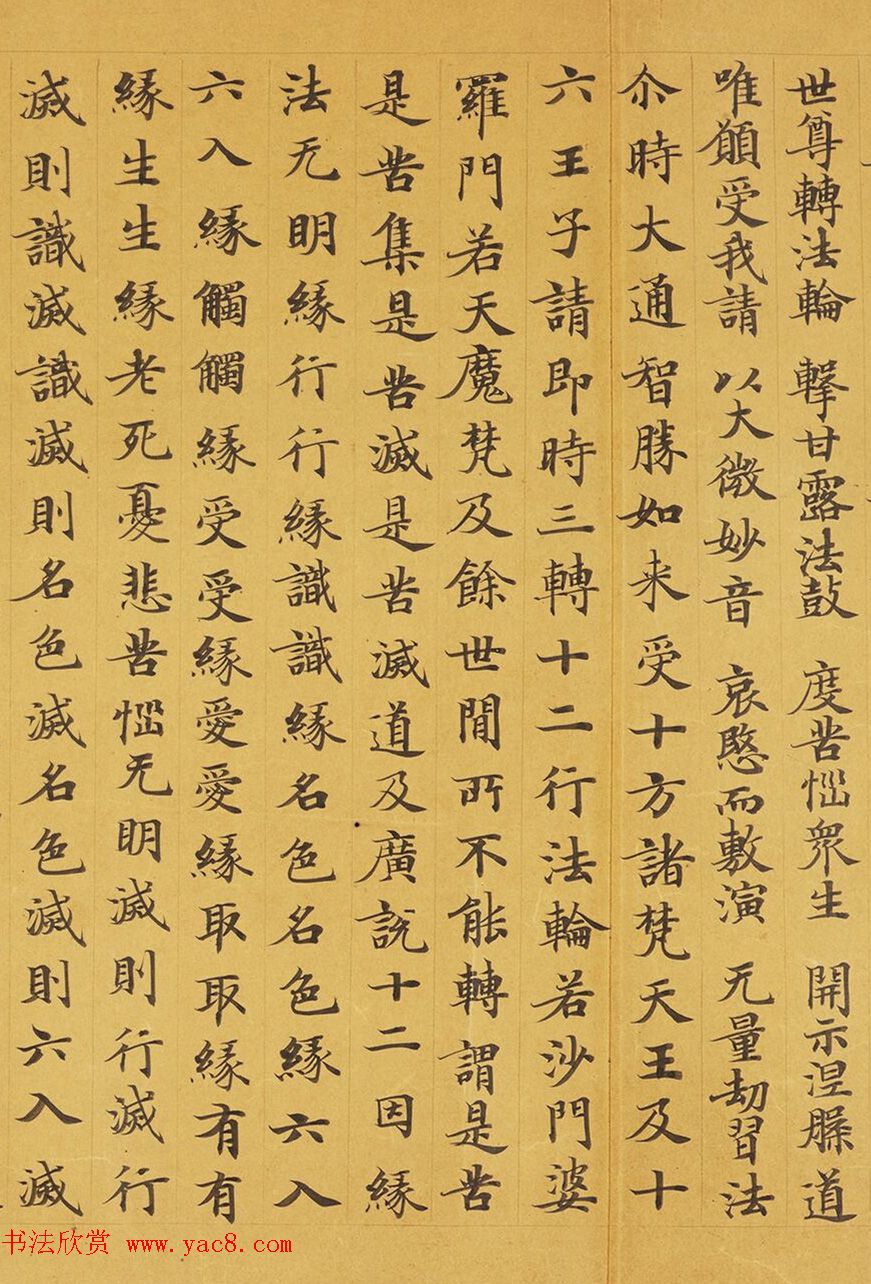 世尊轉法輪 擊甘露法鼓 度苦惱眾生 開示涅槃道
唯願受我請 以大微妙音 哀愍而敷演 无量劫習法
尒時大通智勝如来受十方諸梵天王及十
六王子請即時三轉十二行法輪若沙門婆
羅門若天魔梵及餘世間所不能轉謂是苦
是苦集是苦滅是苦滅道及廣說十二因緣
法无明緣行行緣識識緣名色名色緣六入
六入緣觸觸緣受受緣愛愛緣取取緣有有
緣生生緣老死憂悲苦惱无明滅則行滅行
滅則識滅識滅則名色滅名色滅則六入滅
书法欣赏 www.yac8.com